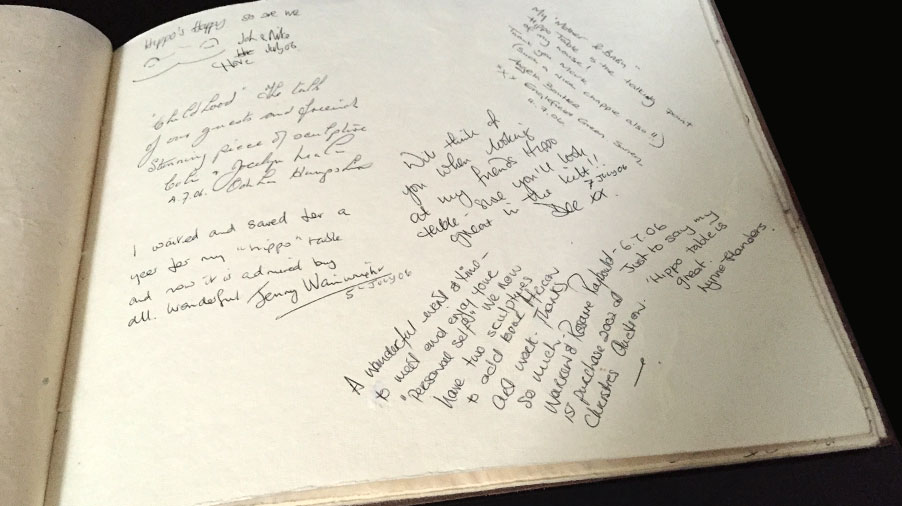 Hippo's Happy so are we
John &
July 06
Hove
"Childhood" the talk
of our guests and friends
Stunning piece of sculpture
Colin & Jocelyn
4.7.06. Hampshire
I waited and saved for a
year for my "hippo" table
and now it is admired by
all. Wonderful Jenny Wainwright
5th July 06
My 'Mother & Baby -
Hippo Table is the talking point
of my house!
Thank you
(Such a nice chappie also!!)
Englefield Green Surrey
4.7.06
xx
We think of
you when looking
at my friends Hippo
table - sure you'll look
great in the kilt!!
7 July 06
Dee xx.
A wonderful event & time -
to meet and enjoy your
"personal self". We now
have two sculptures
to add to our
and work. Thanks
so much.
Warren & 6.7.06
1st purchase 2002 at
Christies Auction.
Just to say my
Hippo table is
great.
Lynne Flanders.